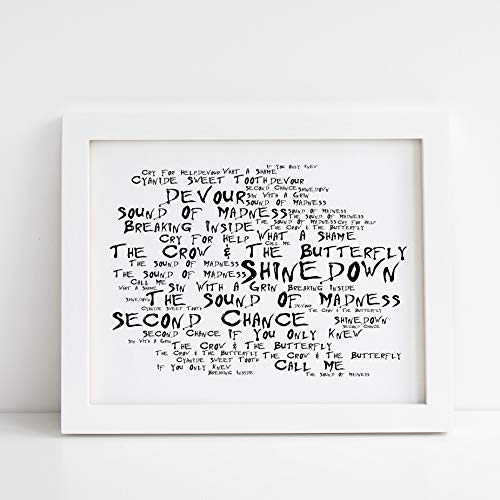 If You Only Knew
Cry For Help Devour What A Shame
Cyanide Sweet Tooth Devour
Second Chance Shinedown
Devour Sin With A Grin
Sound Of Madness
Sound Of Madness Sound Of Madness
The Sound Of Madness
Breaking Inside The Sound Of Madness Cry For Help
The Crow & The Butterfly
Cry For Help What A Shame
Call Me
The Crow & The Butterfly
The Sound Of Madness
The Sound Of Madness Shinedown
Call Me
What A Shame Sin With A Grin Breaking Inside
Shinedown The Sound Of Madness
Devour
Cyanide Sweet Tooth The Sound Of Madness
Second Chance Shinedown
Second Chance
Second Chance If You Only Knew
Sin With A Grin
The Crow & The Butterfly
The Crow & The Butterfly The Crow & The Butterfly
Cyanide Sweet Tooth
If You Only Knew Call Me
Breaking Inside The Sound Of Madness